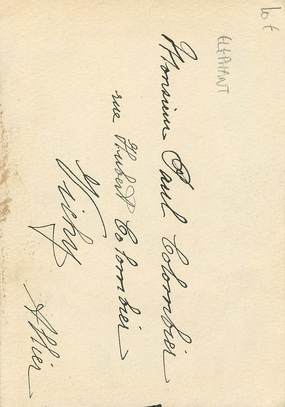 10 €
ELEPHANT
Monsieur Paul Colombier
rue Hubert Colombier
Vichy
Allier